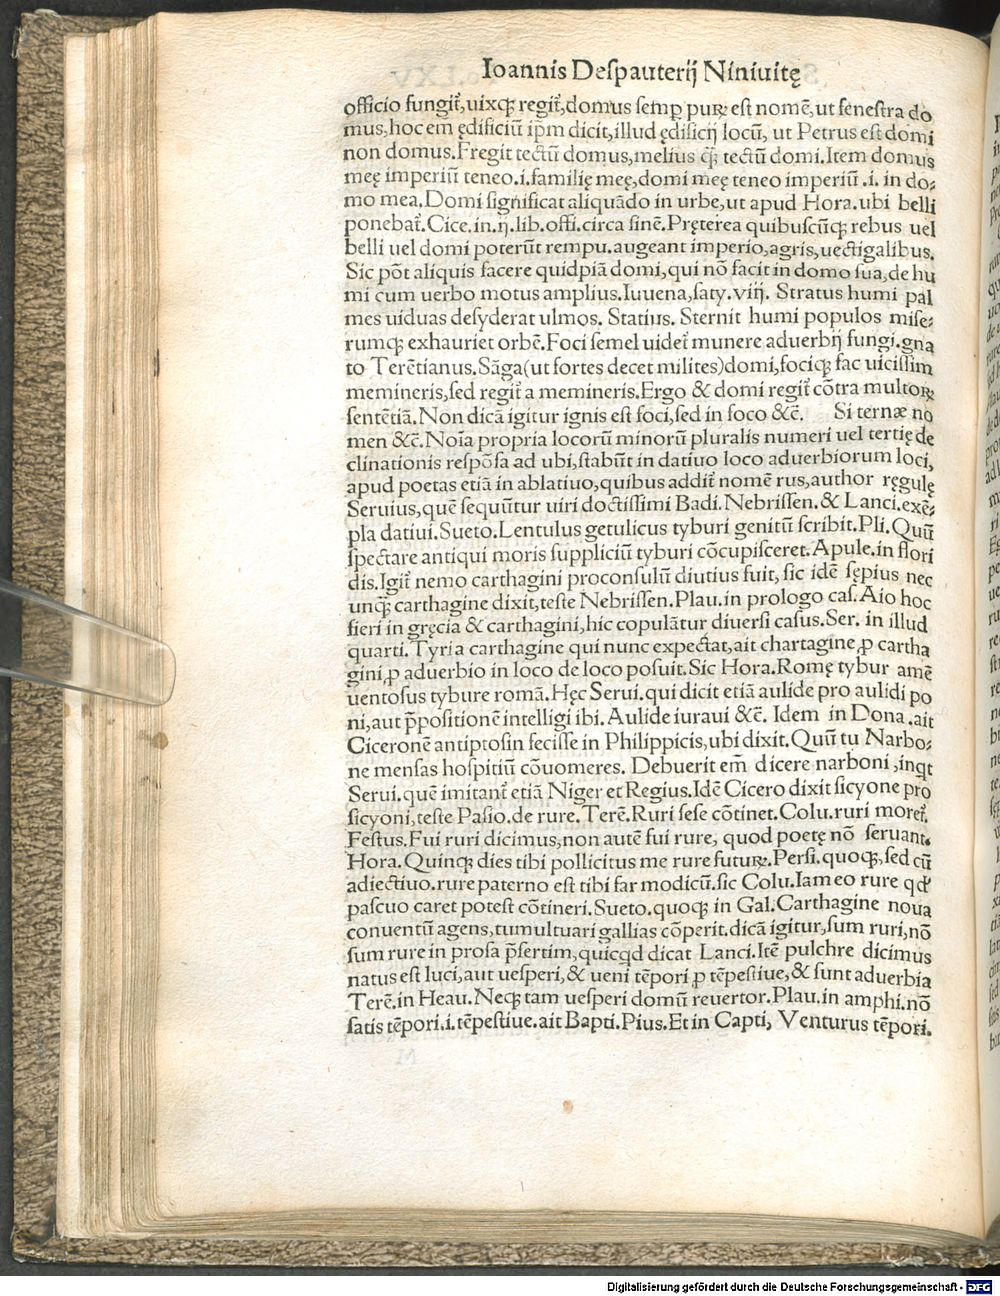 Ioannis Despauterij Niniuitę
officio fungit̃,uixqꝫ regit̃,domus semꝑ puꝝ est nomē,ut fenestra do
mus,hoc em ędificiū ip̄m dicit,illud ędificij locū, ut Petrus est domi
non domus.Fregit tectū domus,melius q̃ꝫ tectū domi.Item domus
meę imperiū teneo.i.familię meę,domi meę teneo imperiū .i. in do⸗
mo mea.Domi significat aliquādo in urbe,ut apud Hora.ubi belli
ponebat̃.Cice.in.ij.lib.offi.circa finē.Pręterea quibuscūqꝫ rebus uel
belli uel domi poterūt rempu.augeant imperio,agris,uectigalibus.
Sic pōt aliquis facere quidpiā domi,qui nō facit in domo sua,de hu
mi cum uerbo motus amplius.Iuuena,saty.viij. Stratus humi pal
mes uiduas desyderat ulmos. Statius. Sternit humi populos mise⸗
rumqꝫ exhauriet orbē.Foci semel uidet̃ munere aduerbij fungi.gna
to Terētianus.Sāga(ut fortes decet milites)domi,fociqꝫ fac uicissim
memineris,sed regit̃ a memineris.Ergo & domi regit̃ cōtra multoꝝ
sentētiā.Non dicā igitur ignis est foci,sed in foco &c̄. Si ternæ no
men &c̄.Noīa propria locorū minorū pluralis numeri uel tertię de
clinationis respōsa ad ubi,stabūt in datiuo loco aduerbiorum loci,
apud poetas etiā in ablatiuo,quibus addit̃ nomē rus,author ręgulę
Seruius,quē sequūtur uiri doctissimi Badi. Nebrissen. & Lanci.exē⸗
pla datiui.Sueto.Lentulus getulicus tyburi genitū scribit.Pli.Quū
spectare antiqui moris suppliciū tyburi cōcupisceret.Apule.in flori
dis.Igit̃ nemo carthagini proconsulū diutius fuit, sic idē sępius nec
unqꝫ carthagine dixit,teste Nebrissen.Plau.in prologo cas.Aio hoc
fieri in gręcia & carthagini,hic copulātur diuersi casus.Ser. in illud
quarti.Tyria carthagine qui nunc expectat,ait chartagine,ꝓ cartha
gini,ꝓ aduerbio in loco de loco posuit.Sic Hora.Romę tybur amē
uentosus tybure romā.Hęc Serui.qui dicit etiā aulide pro aulidi po
ni,aut p̄positionē intelligi ibi. Aulide iuraui &c̄. Idem in Dona.ait
Ciceronē antiptosin fecisse in Philippicis,ubi dixit.Quū tu Narbo⸗
ne mensas hospitiū cōuomeres. Debuerit em̄ dicere narboni ,inqt
Serui.quē imitant̃ etiā Niger et Regius.Idē Cicero dixit sicyone pro
sicyoni,teste Pasio.de rure.Terē.Ruri sese cōtinet.Colu.ruri moret̃.
Festus.Fui ruri dicimus,non autē fui rure, quod poetę nō seruant.
Hora.Quinqꝫ dies tibi pollicitus me rure futuꝝ.Persi.quoqꝫ,sed cū
adiectiuo.rure paterno est tibi far modicū.sic Colu.Iam eo rure qđ
pascuo caret potest cōtineri.Sueto.quoqꝫ in Gal.Carthagine noua
conuentū agens,tumultuari gallias cōperit.dicā igitur,sum ruri,nō
sum rure in prosa p̄sertim,quicqd dicat Lanci.Itē pulchre dicimus
natus est luci,aut uesperi,& ueni tēpori ꝓ tēpestiue,& sunt aduerbia
Terē.in Heau.Neqꝫ tam uesperi domū reuertor.Plau.in amphi.nō
satis tēpori.i.tēpestiue.ait Bapti.Pius.Et in Capti, Venturus tēpori.
Digitalisierung gefördert durch die Deutsche Forschungsgemeinschaft - DFG